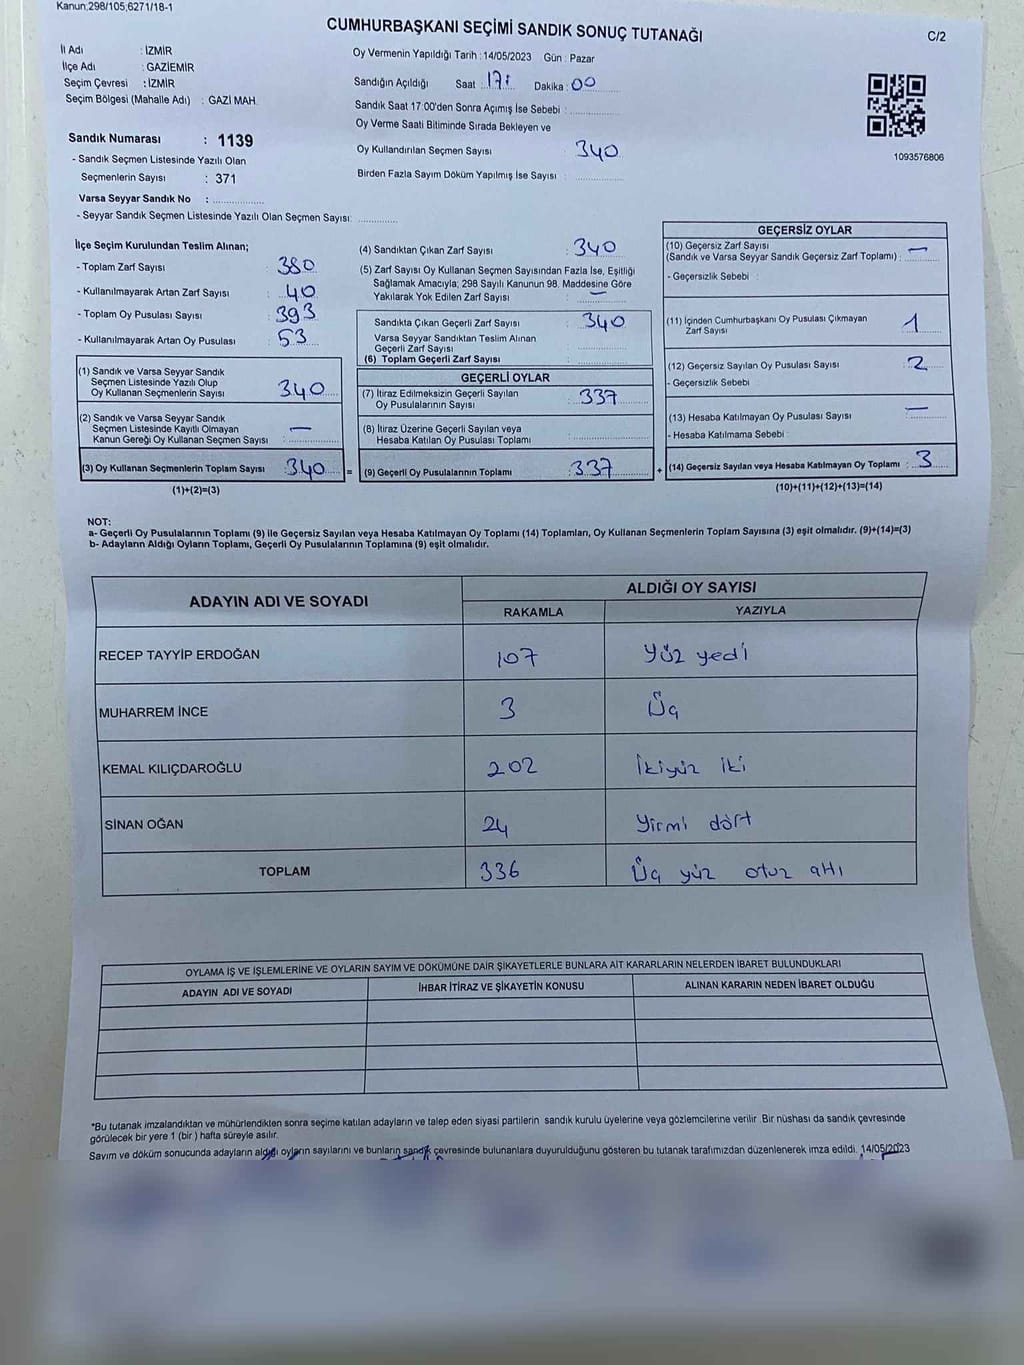 Kanun;298/105;6271/18-1
CUMHURBAŞKANI SEÇİMİ SANDIK SONUÇ TUTANAĞI
C/2
İl Adı : İZMİR
İlçe Adı : GAZİEMİR
Seçim Çevresi : İZMİR
Seçim Bölgesi (Mahalle Adı) : GAZİ MAH.
Sandık Numarası : 1139
- Sandık Seçmen Listesinde Yazılı Olan
Seçmenlerin Sayısı : 371
Varsa Seyyar Sandık No :
- Seyyar Sandık Seçmen Listesinde Yazılı Olan Seçmen Sayısı:
Oy Vermenin Yapıldığı Tarih : 14/05/2023 Gün : Pazar
Sandığın Açıldığı Saat 17: Dakika : 00
Sandık Saat 17:00'den Sonra Açımış İse Sebebi :
Oy Verme Saati Bitiminde Sırada Bekleyen ve
Oy Kullandırılan Seçmen Sayısı : 340
Birden Fazla Sayım Döküm Yapılmış İse Sayısı :
1093576806
İlçe Seçim Kurulundan Teslim Alınan;
- Toplam Zarf Sayısı : 380
- Kullanılmayarak Artan Zarf Sayısı : 40
- Toplam Oy Pusulası Sayısı : 393
- Kullanılmayarak Artan Oy Pusulası : 53
(1) Sandık ve Varsa Seyyar Sandık
Seçmen Listesinde Yazılı Olup
Oy Kullanan Seçmenlerin Sayısı : 340
(2) Sandık ve Varsa Seyyar Sandık
Seçmen Listesinde Kayıtlı Olmayan
Kanun Gereği Oy Kullanan Seçmen Sayısı : —
(3) Oy Kullanan Seçmenlerin Toplam Sayısı : 340 =
(1)+(2)=(3)
(4) Sandıktan Çıkan Zarf Sayısı : 340
(5) Zarf Sayısı Oy Kullanan Seçmen Sayısından Fazla İse, Eşitliği
Sağlamak Amacıyla; 298 Sayılı Kanunun 98. Maddesine Göre
Yakılarak Yok Edilen Zarf Sayısı : —
Sandıkta Çıkan Geçerli Zarf Sayısı : 340
Varsa Seyyar Sandıktan Teslim Alınan
Geçerli Zarf Sayısı :
(6) Toplam Geçerli Zarf Sayısı :
GEÇERLİ OYLAR
(7) İtiraz Edilmeksizin Geçerli Sayılan
Oy Pusulalarının Sayısı : 337
(8) İtiraz Üzerine Geçerli Sayılan veya
Hesaba Katılan Oy Pusulası Toplamı :
(9) Geçerli Oy Pusulalarının Toplamı : 337 +
GEÇERSİZ OYLAR
(10) Geçersiz Zarf Sayısı
(Sandık ve Varsa Seyyar Sandık Geçersiz Zarf Toplamı) : —
- Geçersizlik Sebebi :
(11) İçinden Cumhurbaşkanı Oy Pusulası Çıkmayan
Zarf Sayısı : 1
(12) Geçersiz Sayılan Oy Pusulası Sayısı : 2
- Geçersizlik Sebebi
(13) Hesaba Katılmayan Oy Pusulası Sayısı : —
- Hesaba Katılmama Sebebi :
(14) Geçersiz Sayılan veya Hesaba Katılmayan Oy Toplamı : 3
(10)+(11)+(12)+(13)=(14)
NOT:
a- Geçerli Oy Pusulalarının Toplamı (9) ile Geçersiz Sayılan veya Hesaba Katılmayan Oy Toplamı (14) Toplamları, Oy Kullanan Seçmenlerin Toplam Sayısına (3) eşit olmalıdır. (9)+(14)=(3)
b- Adayların Aldığı Oyların Toplamı, Geçerli Oy Pusulalarının Toplamına (9) eşit olmalıdır.
ADAYIN ADI VE SOYADI ALDIĞI OY SAYISI
RAKAMLA YAZIYLA
RECEP TAYYİP ERDOĞAN 107 Yüz yedi
MUHARREM İNCE 3 Üç
KEMAL KILIÇDAROĞLU 202 İkiyüz iki
SİNAN OĞAN 24 Yirmi dört
TOPLAM 336 Üç yüz otuz altı
OYLAMA İŞ VE İŞLEMLERİNE VE OYLARIN SAYIM VE DÖKÜMÜNE DAİR ŞİKAYETLERLE BUNLARA AİT KARARLARIN NELERDEN İBARET BULUNDUKLARI
ADAYIN ADI VE SOYADI İHBAR İTİRAZ VE ŞİKAYETİN KONUSU ALINAN KARARIN NEDEN İBARET OLDUĞU
*Bu tutanak imzalandıktan ve mühürlendikten sonra seçime katılan adayların ve talep eden siyasi partilerin sandık kurulu üyelerine veya gözlemcilerine verilir. Bir nüshası da sandık çevresinde
görülecek bir yere 1 (bir ) hafta süreyle asılır.
Sayım ve döküm sonucunda adayların aldığı oyların sayılarını ve bunların sandık çevresinde bulunanlara duyurulduğunu gösteren bu tutanak tarafımızdan düzenlenerek imza edildi. 14/05/2023